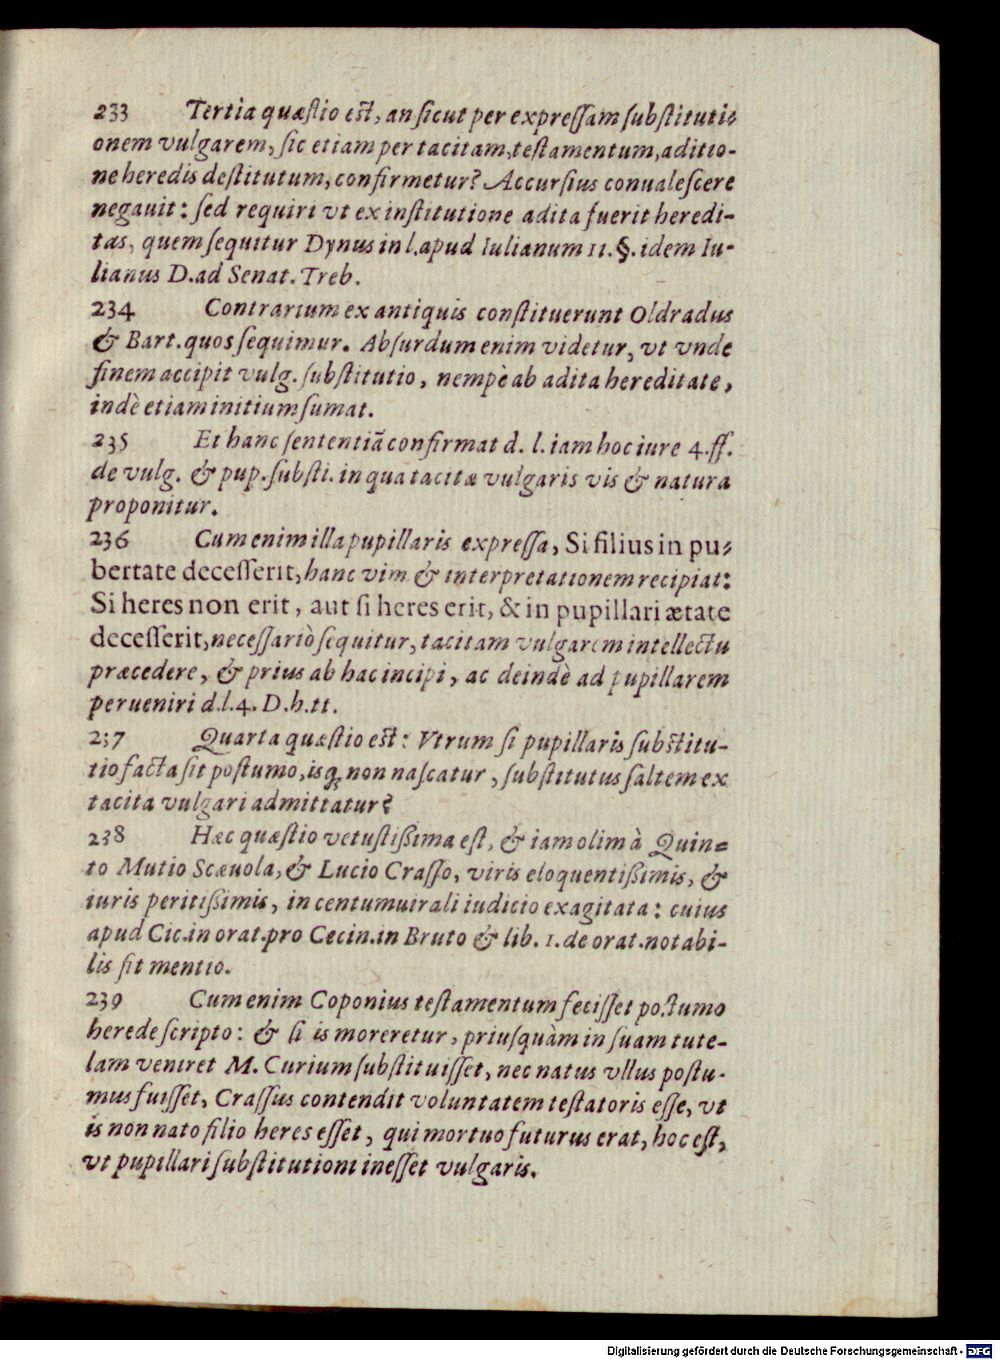 233 Tertia quæſtio eſt, an ſicut per expreſſam ſubſtituti-
onem vulgarem, ſic etiam per tacitam, teſtamentum, aditio-
ne heredis deſtitutum, confirmetur? Accurſius conualeſcere
negauit: ſed requiri vt ex inſtitutione adita fuerit heredi-
tas, quem ſequitur Dynus in l. apud Iulianum 11. §. idem Iu-
lianus D. ad Senat. Treb.
234 Contrarium ex antiquis conſtituerunt Oldradus
& Bart. quos ſequimur. Abſurdum enim videtur, vt vnde
finem accipit vulg. ſubſtitutio, nempè ab adita hereditate,
indè etiam initium ſumat.
235 Et hanc ſententiã confirmat d. l. iam hoc iure 4. ff.
de vulg. & pup. ſubſti. in qua tacitæ vulgaris vis & natura
proponitur.
236 Cum enim illa pupillaris expreſſa, Si filius in pu-
bertate deceſſerit, hanc vim & interpretationem recipiat:
Si heres non erit, aut ſi heres erit, & in pupillari ætate
deceſſerit, neceſſariò ſequitur, tacitam vulgarem intellectu
præcedere, & prius ab hac incipi, ac deindè ad pupillarem
perueniri d. l. 4. D. h. tt.
237 Quarta quæſtio eſt: Vtrum ſi pupillaris ſubſtitu-
tio facta ſit poſtumo, isq; non naſcatur, ſubſtitutus ſaltem ex
tacita vulgari admittatur?
238 Hæc quæſtio vetuſtißima eſt, & iam olim à Quin-
to Mutio Scæuola, & Lucio Craſſo, viris eloquentißimis, &
iuris peritißimis, in centumuirali iudicio exagitata: cuius
apud Cic. in orat. pro Cecin. in Bruto & lib. 1. de orat. notabi-
lis fit mentio.
239 Cum enim Coponius teſtamentum feciſſet poſtumo
herede ſcripto: & ſi is moreretur, priuſquàm in ſuam tute-
lam veniret M. Curium ſubſtituiſſet, nec natus vllus poſtu-
mus fuiſſet, Craſſus contendit voluntatem teſtatoris eſſe, vt
is non nato filio heres eſſet, qui mortuo futurus erat, hoc eſt,
vt pupillari ſubſtitutioni ineſſet vulgaris.
Digitalisierung gefördert durch die Deutsche Forschungsgemeinschaft - DFG